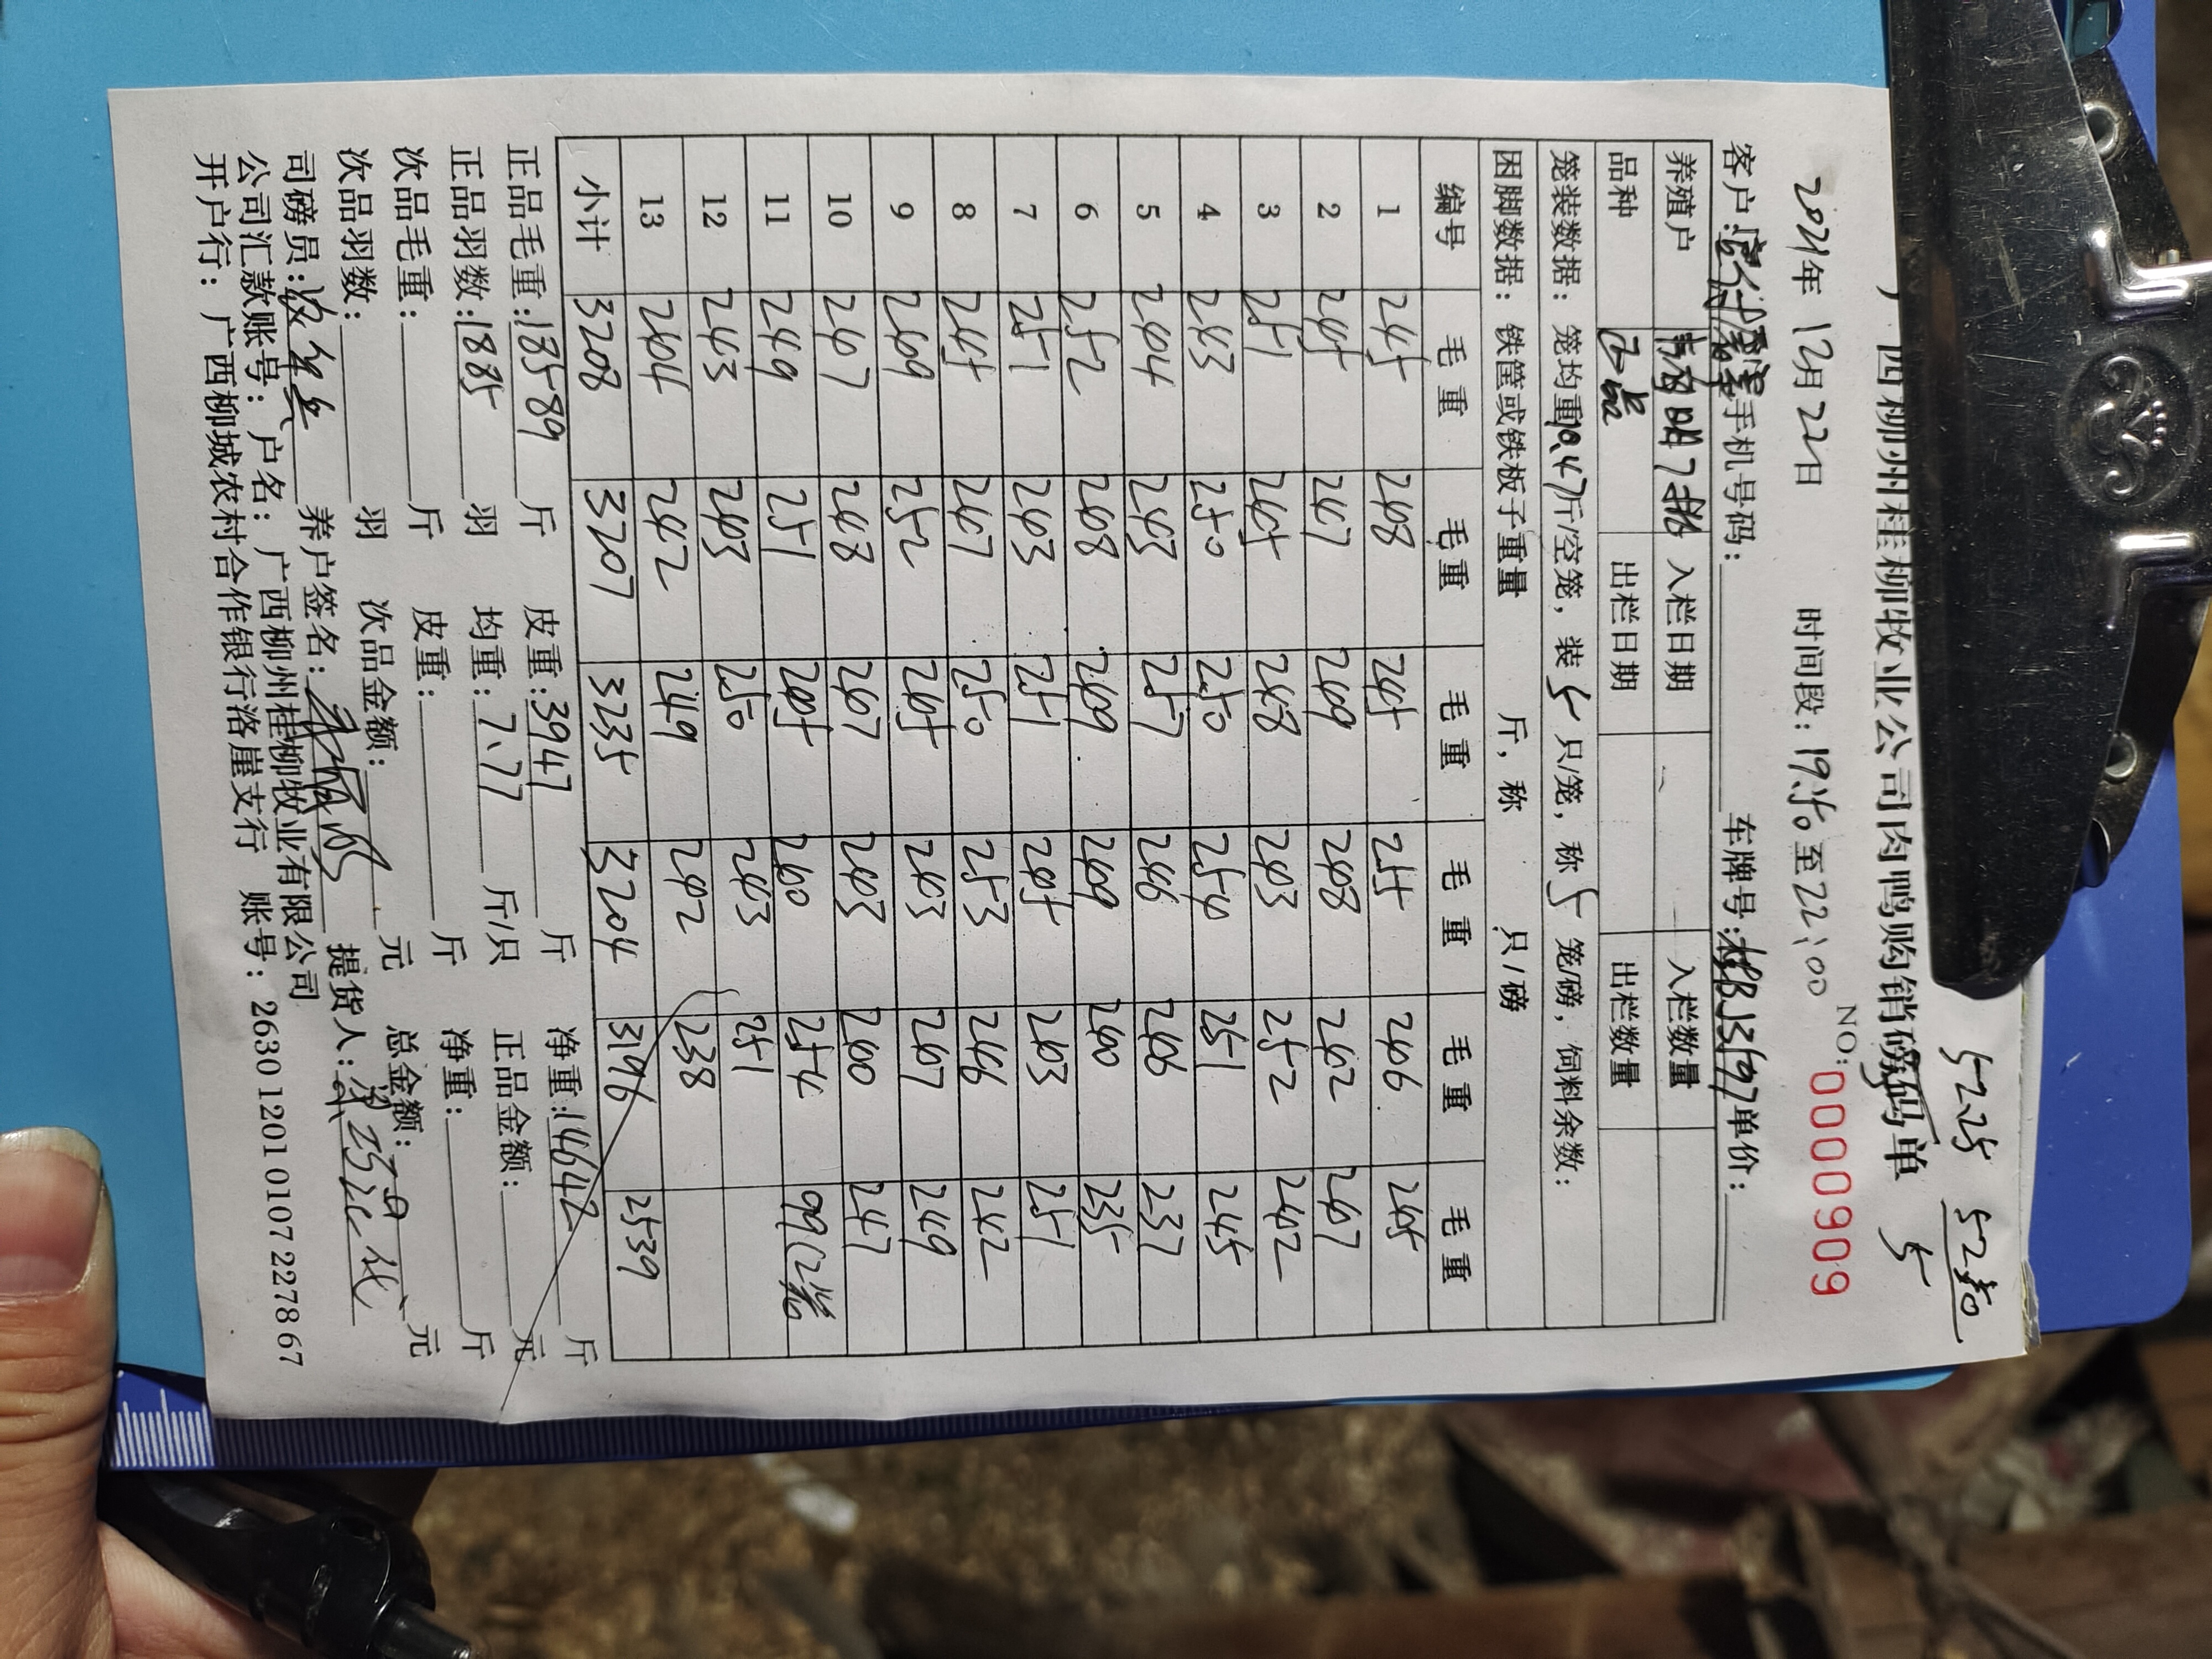 5225 5240
广西柳州桂柳牧业公司肉鸭购销磅码单 5
NO:0000909
2021年12月22日 时间段:19:50至22:00
客户: 手机号码: 车牌号: 单价:
养殖户 入栏日期 入栏数量
品种 正品 出栏日期 出栏数量
笼装数据: 笼均重10.47斤/空笼, 装5只/笼, 称5笼/磅, 饲料余数:
困脚数据: 铁筐或铁板子重量 斤, 称 只/磅
编号 毛重 毛重 毛重 毛重 毛重 毛重
1 245 248 245 255 246 245
2 245 247 249 248 242 247
3 251 245 248 243 252 242
4 243 250 250 254 251 245
5 244 243 257 246 246 237
6 252 248 249 249 240 235
7 251 243 251 245 243 251
8 245 247 250 253 246 242
9 249 252 245 243 247 249
10 247 248 247 243 240 247
11 249 251 245 240 254 99(2笼
12 243 243 250 243 251
13 244 242 249 242 238
小计 3208 3207 3235 3204 3196 2539
正品毛重:18589斤 皮重:3947斤 净重:14642斤
正品羽数:1885羽 均重:7.77斤/只 正品金额: 元
次品毛重: 斤 皮重: 斤 净重: 斤
次品羽数: 羽 次品金额: 元 总金额: 元
司磅员: 养户签名: 提货人:
公司汇款账号: 户名: 广西柳州桂柳牧业有限公司
开户行: 广西柳城农村合作银行洛崖支行 账号: 263012010107227867